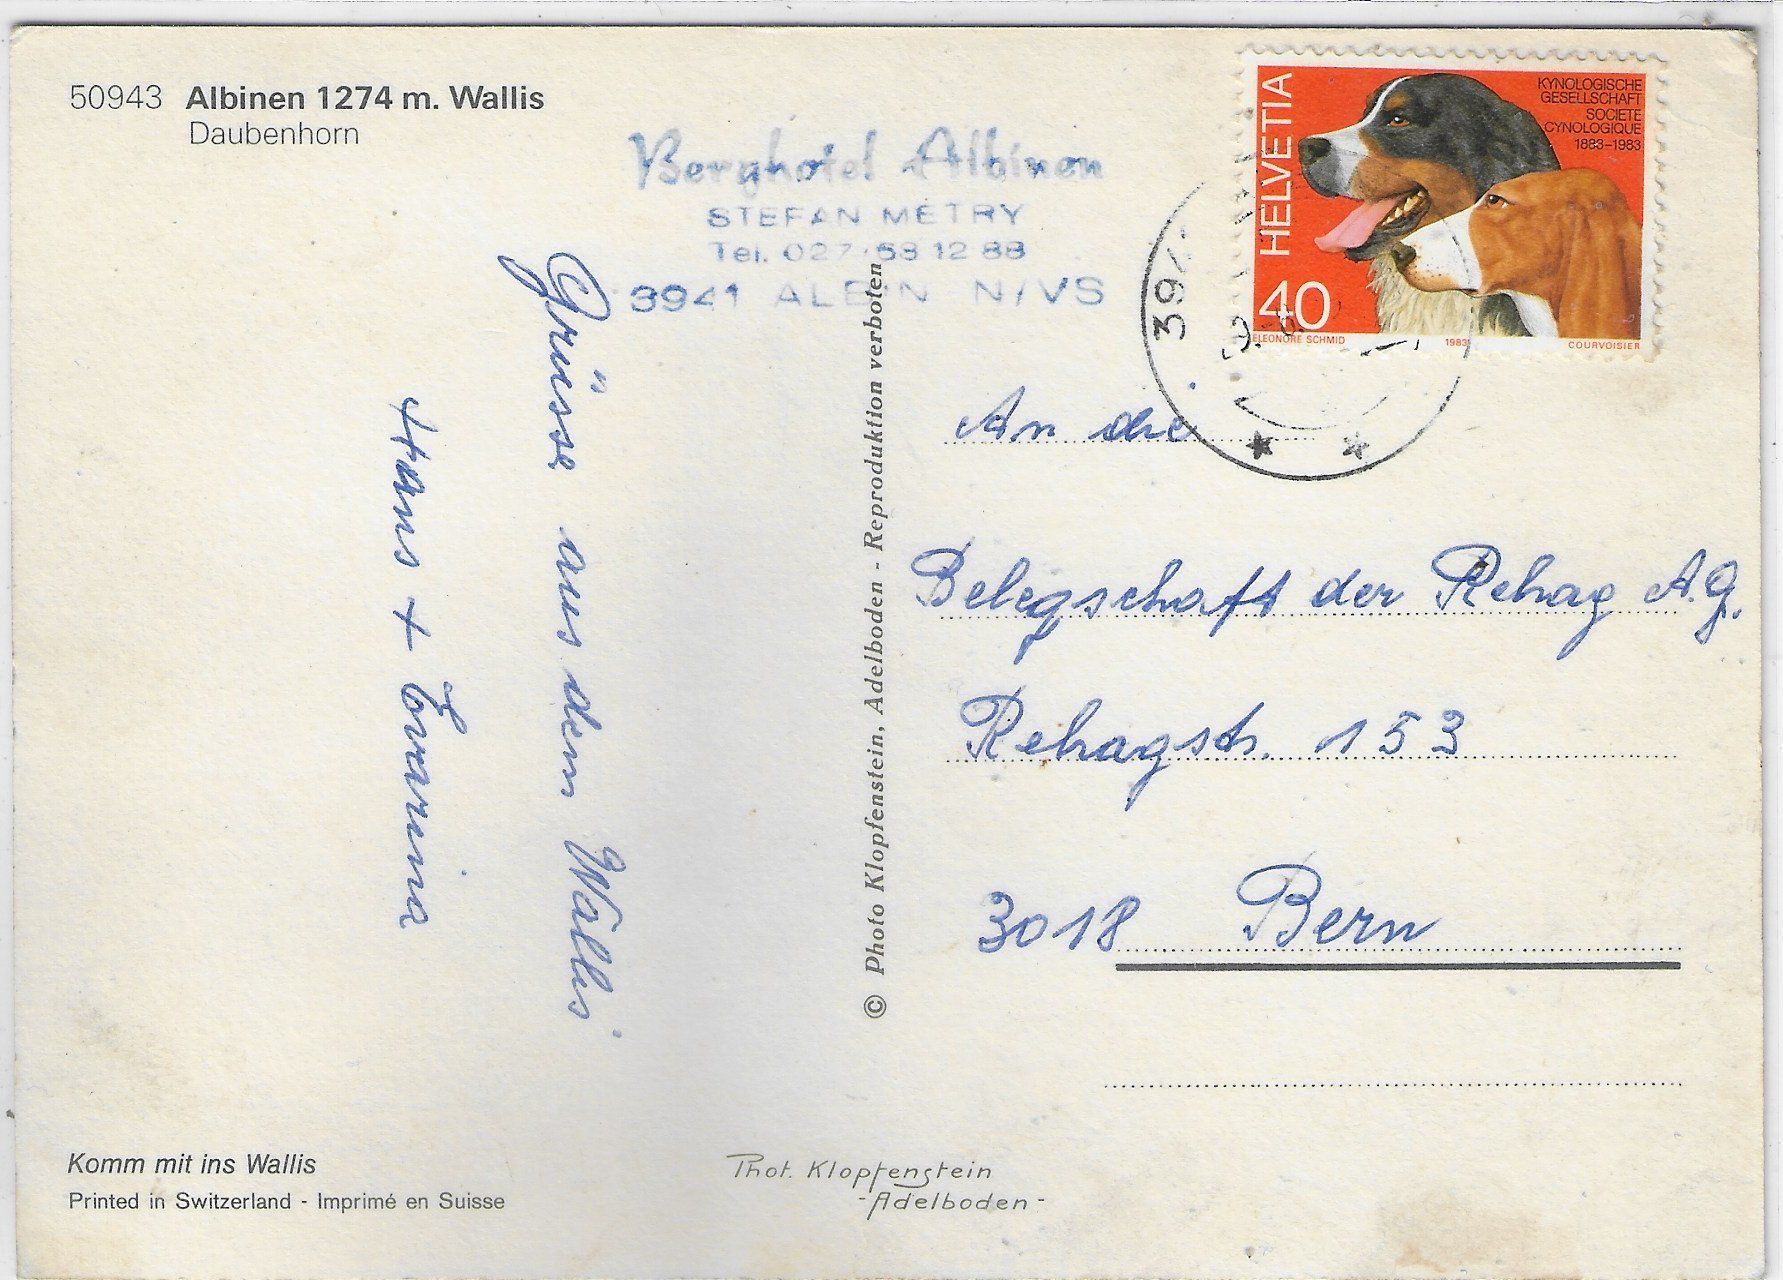 50943 Albinen 1274 m. Wallis
Daubenhorn
Berghotel Albinen
STEFAN METRY
Tel. 027 / 63 12 88
3941 ALBINEN/VS
HELVETIA
KYNOLOGISCHE
GESELLSCHAFT
SOCIETE
CYNOLOGIQUE
1883-1983
40
ELEONORE SCHMID 1983 COURVOISIER
Grüsse aus dem Wallis
Hans +
© Photo Klopfenstein, Adelboden - Reproduktion verboten
An die
Belegschaft der Rehag A.G.
Rehagstr. 153
3018 Bern
Komm mit ins Wallis
Printed in Switzerland - Imprimé en Suisse
Phot. Klopfenstein
-Adelboden-